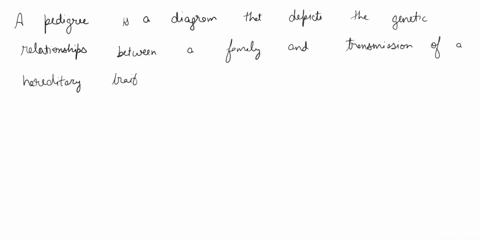 A pedigree is a diagram that depicts the genetic
relationships between a family and transmission of a
hereditary trait